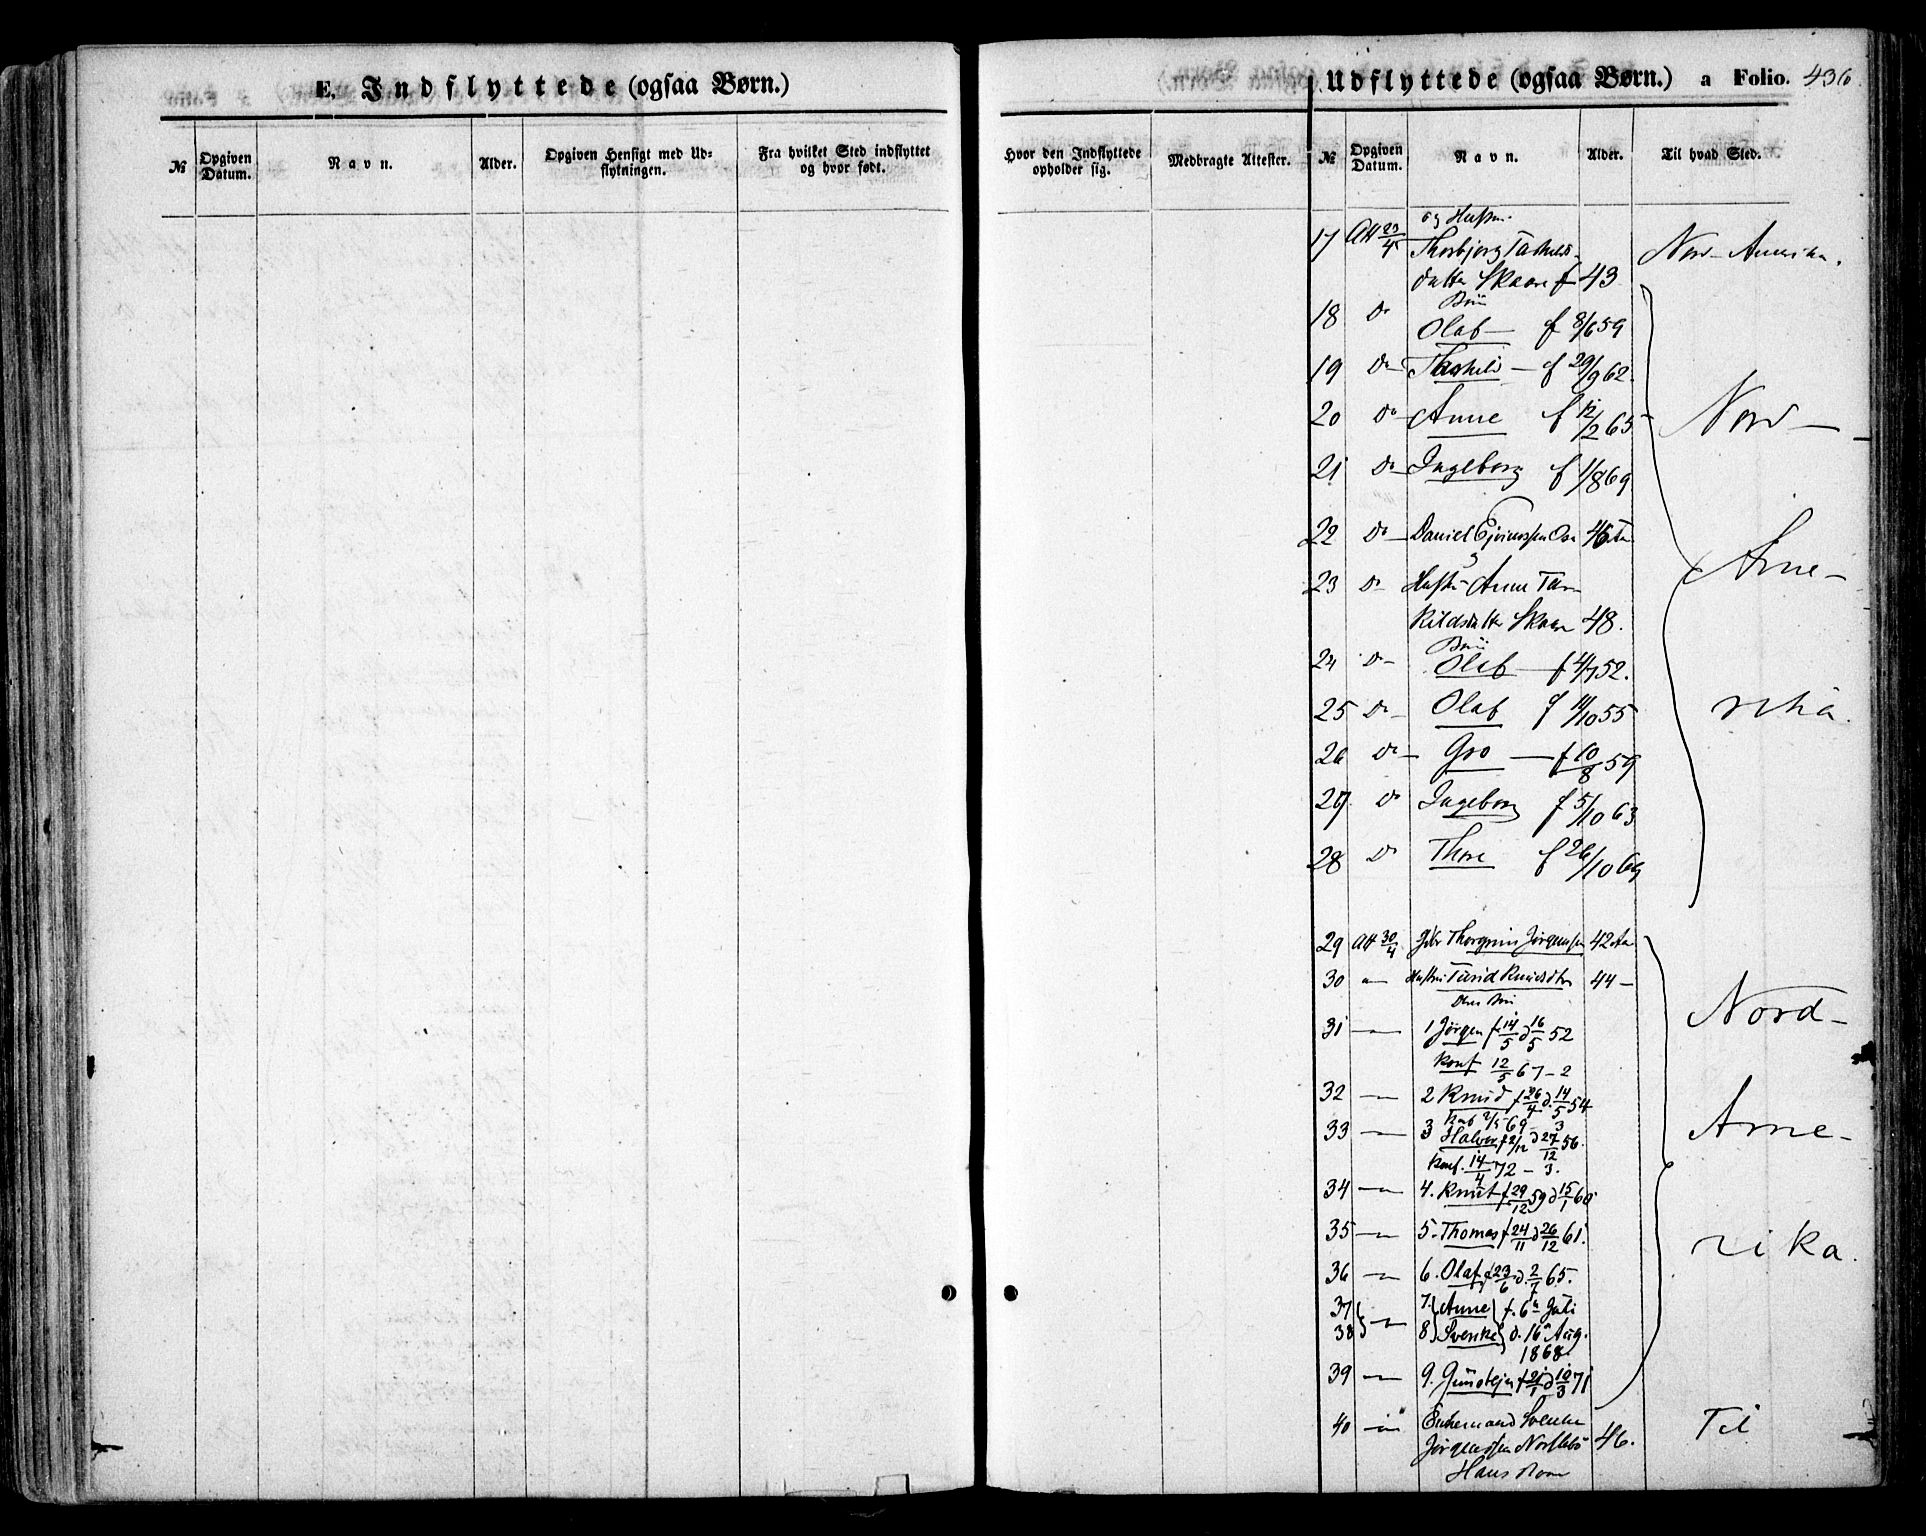 E. Indflyttede (ogsaa Børn.)
№
Opgiven Datum.
Navn.
Alder.
Opgiven Hensigt med Udflytningen.
Fra hvilket Sted indflyttet og hvor født.
Hvor den Indflyttede opholder sig.
Medbragte Attester.
Udflyttede (ogsaa Børn.) a Folio. 436
№
Opgiven Datum.
Navn.
Alder.
Til hvad Sted.
og Hustru
17 Att 23/4 Thorbjorg Taskilds-
datter Skaare f 43 Nord-Amerika.
Børn
18 Do Olaf — f 8/6 59
19 Do — Taskild — f 29/9 62.
20 Do — Anne f 12/2 65 Nord —
21 Do — Ingeborg f 1/8 69
22 Do — Daniel 46 Aar
23 Do — Hustru Anne Tas- Ame-
kildsdatter Skaare 48.
Børn
24 Do — Olaf — f 4/7 52.
25 Do — Olaf f 11/10 55 rika.
26 Do — Gro — f 10/8 59
27 Do Ingeborg f 5/10 63
28 Do Thore f 26/10 69
29 Att 30/4 Thorgrim Jørgensen 42 Aar
30 — Hustru Turid Knudsdtr 44 —
deres Børn Nord-
31 — 1 Jørgen f 14/5 d 16/5 52
konf 12/5 67 - 2
32 — 2 Knud f 26/4 d. 14/5 54
konf 2/5 69 - 3
33 — 3 Halvor f 2/12 d 27/12 56. Ame-
konf. 14/4 72 - 3.
34 — 4. Knut f 29/12 59 d 15/1 60
35 — 5. Thomas f 24/11 d 26/12 61. rika.
36 — 6. Olaf f 23/6 d. 2/7 65.
37 — 7. Anne f. 6te Juli
38 8 Svenke d. 16de Aug.
1868.
39 — 9. Gunstejn f 21/1 d 10/3 71
40 — Enkemand Svenke Til
Jørgenssen 46.
Hans